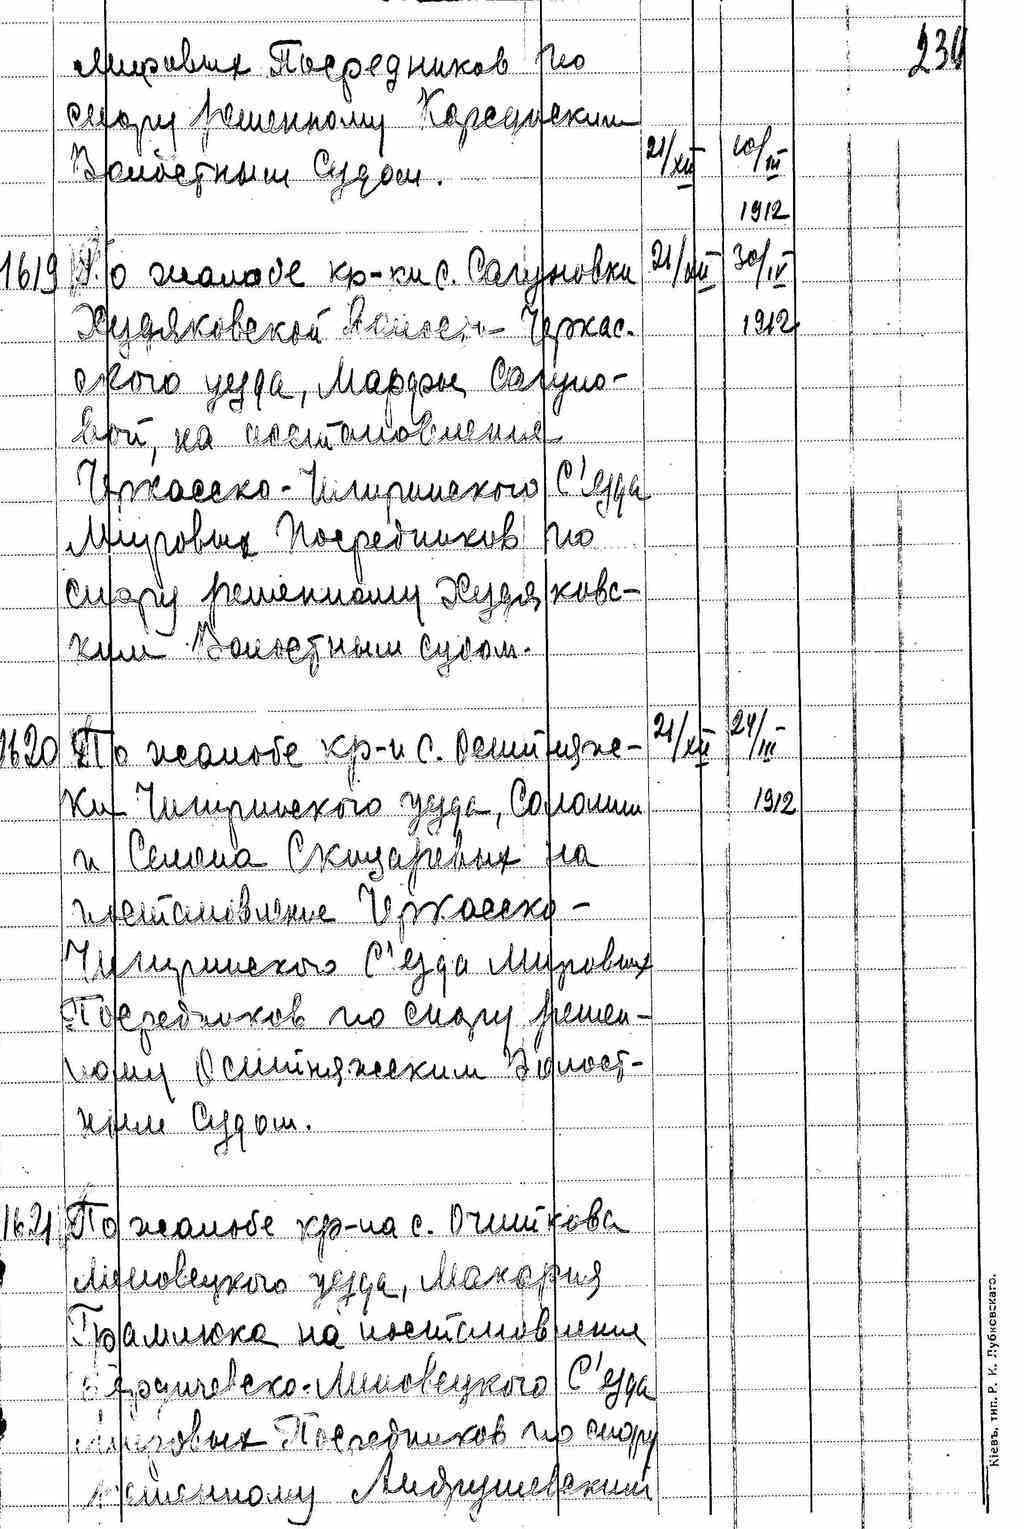 Мировых Посредников по
спору решенному Корсунским
Волостным Судом. 21/XII 10/III
1912
1619 По жалобе кр-ки с. Сагуновки 21/XII 30/IV
Худяковской Волости Черкас- 1912
ского уезда, Марфы Сагуно-
вой, на постановление
Черкасско-Чигиринского С'езда
Мировых Посредников по
спору решенному Худяковс-
ким Волостным судом.
1620 По жалобе кр-н с. Оситняж- 21/XII 24/III
ки Чигиринского уезда, Соломии 1912
и Семена на
постановление Черкасско-
Чигиринского С'езда Мировых
Посредников по спору решен-
ному Оситняжским Волост-
ным Судом.
1621 По жалобе кр-на с. Очиткова
Липовецкого уезда, Макария
на постановление
Бердичевско-Липовецкого С'езда
Мировых Посредников по спору
решенному Андрушевским
Кіевъ, тип. Р. К. Лубковскаго.